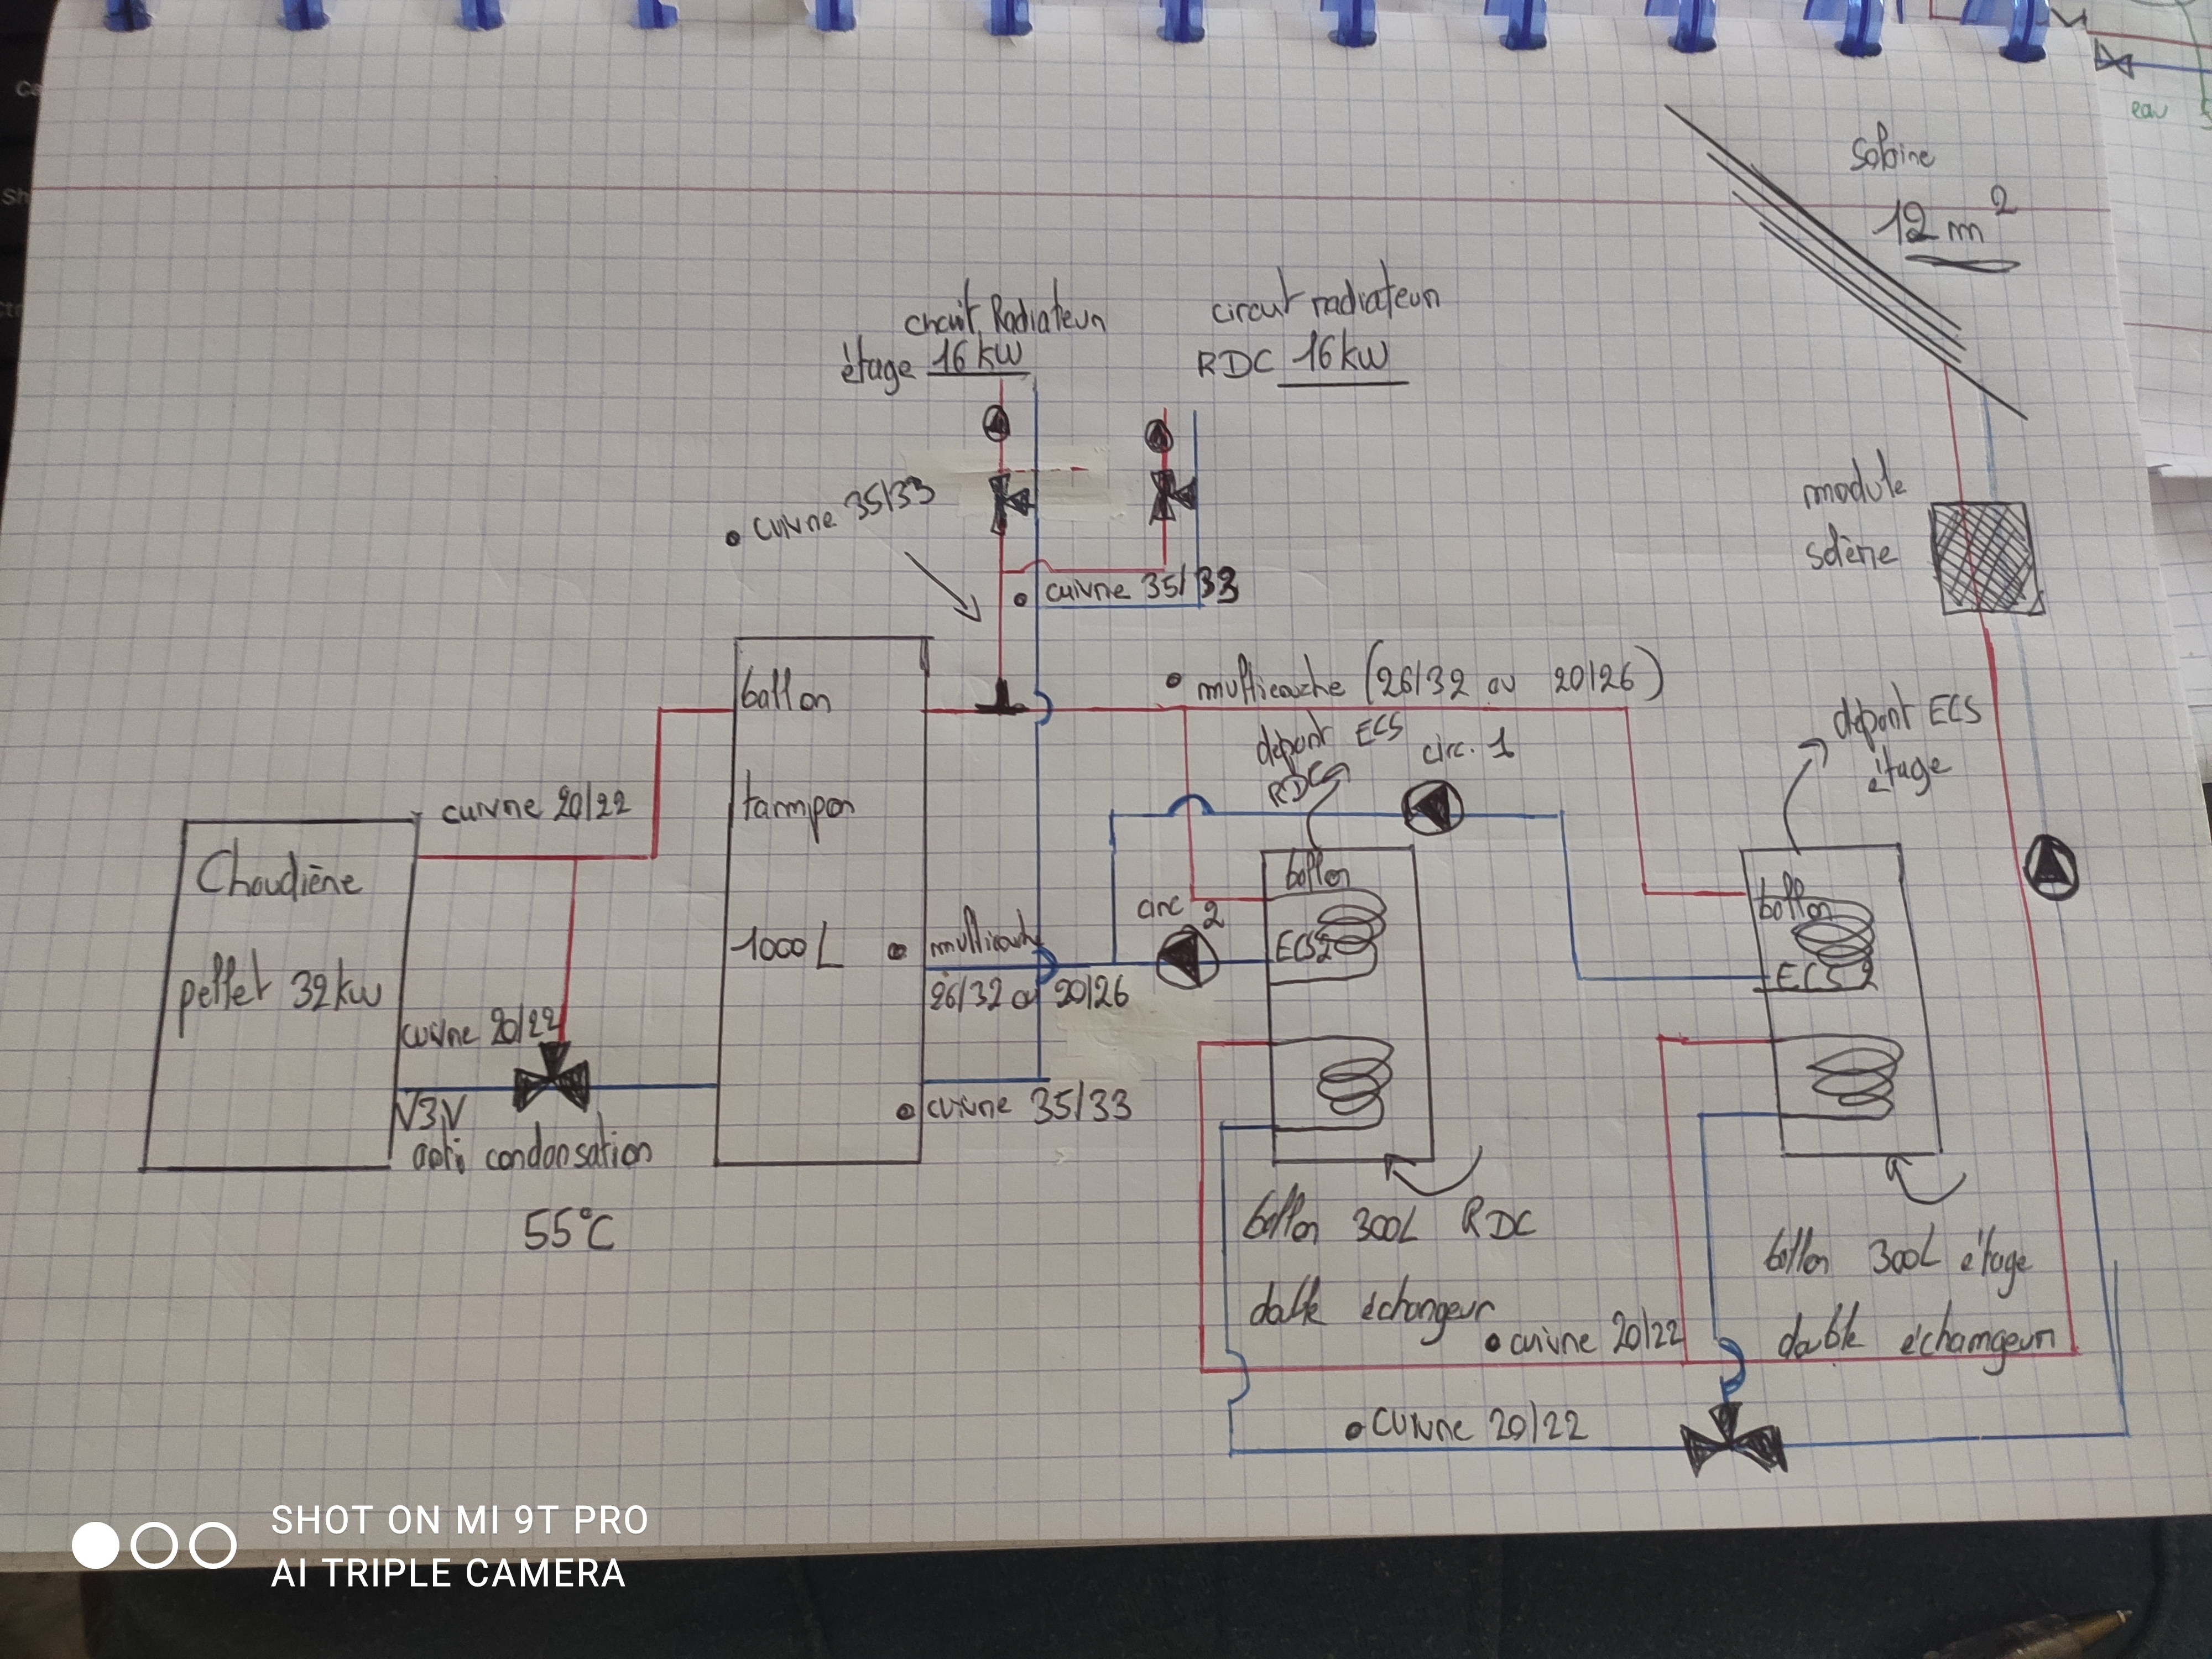 eau
Solaire
12 m²
circuit Radiateur
étage 16 kW
circuit radiateur
RDC 16 kW
• cuivre 35/33
• cuivre 35/33
module
solaire
• multicouche (26/32 ou 20/26)
depart ECS
RDC
circ. 1
depart ECS
étage
ballon
tampon
1000 L
cuivre 20/22
Chaudière
pellet 32 kw
cuivre 20/22
V3V
anti condensation
55°C
• multicouche
26/32 ou 20/26
• cuivre 35/33
circ 2
ballon
ECS2
ballon
ECS 2
ballon 300L RDC
double échangeur
ballon 300L étage
double échangeur
• cuivre 20/22
• cuivre 20/22
SHOT ON MI 9T PRO
AI TRIPLE CAMERA